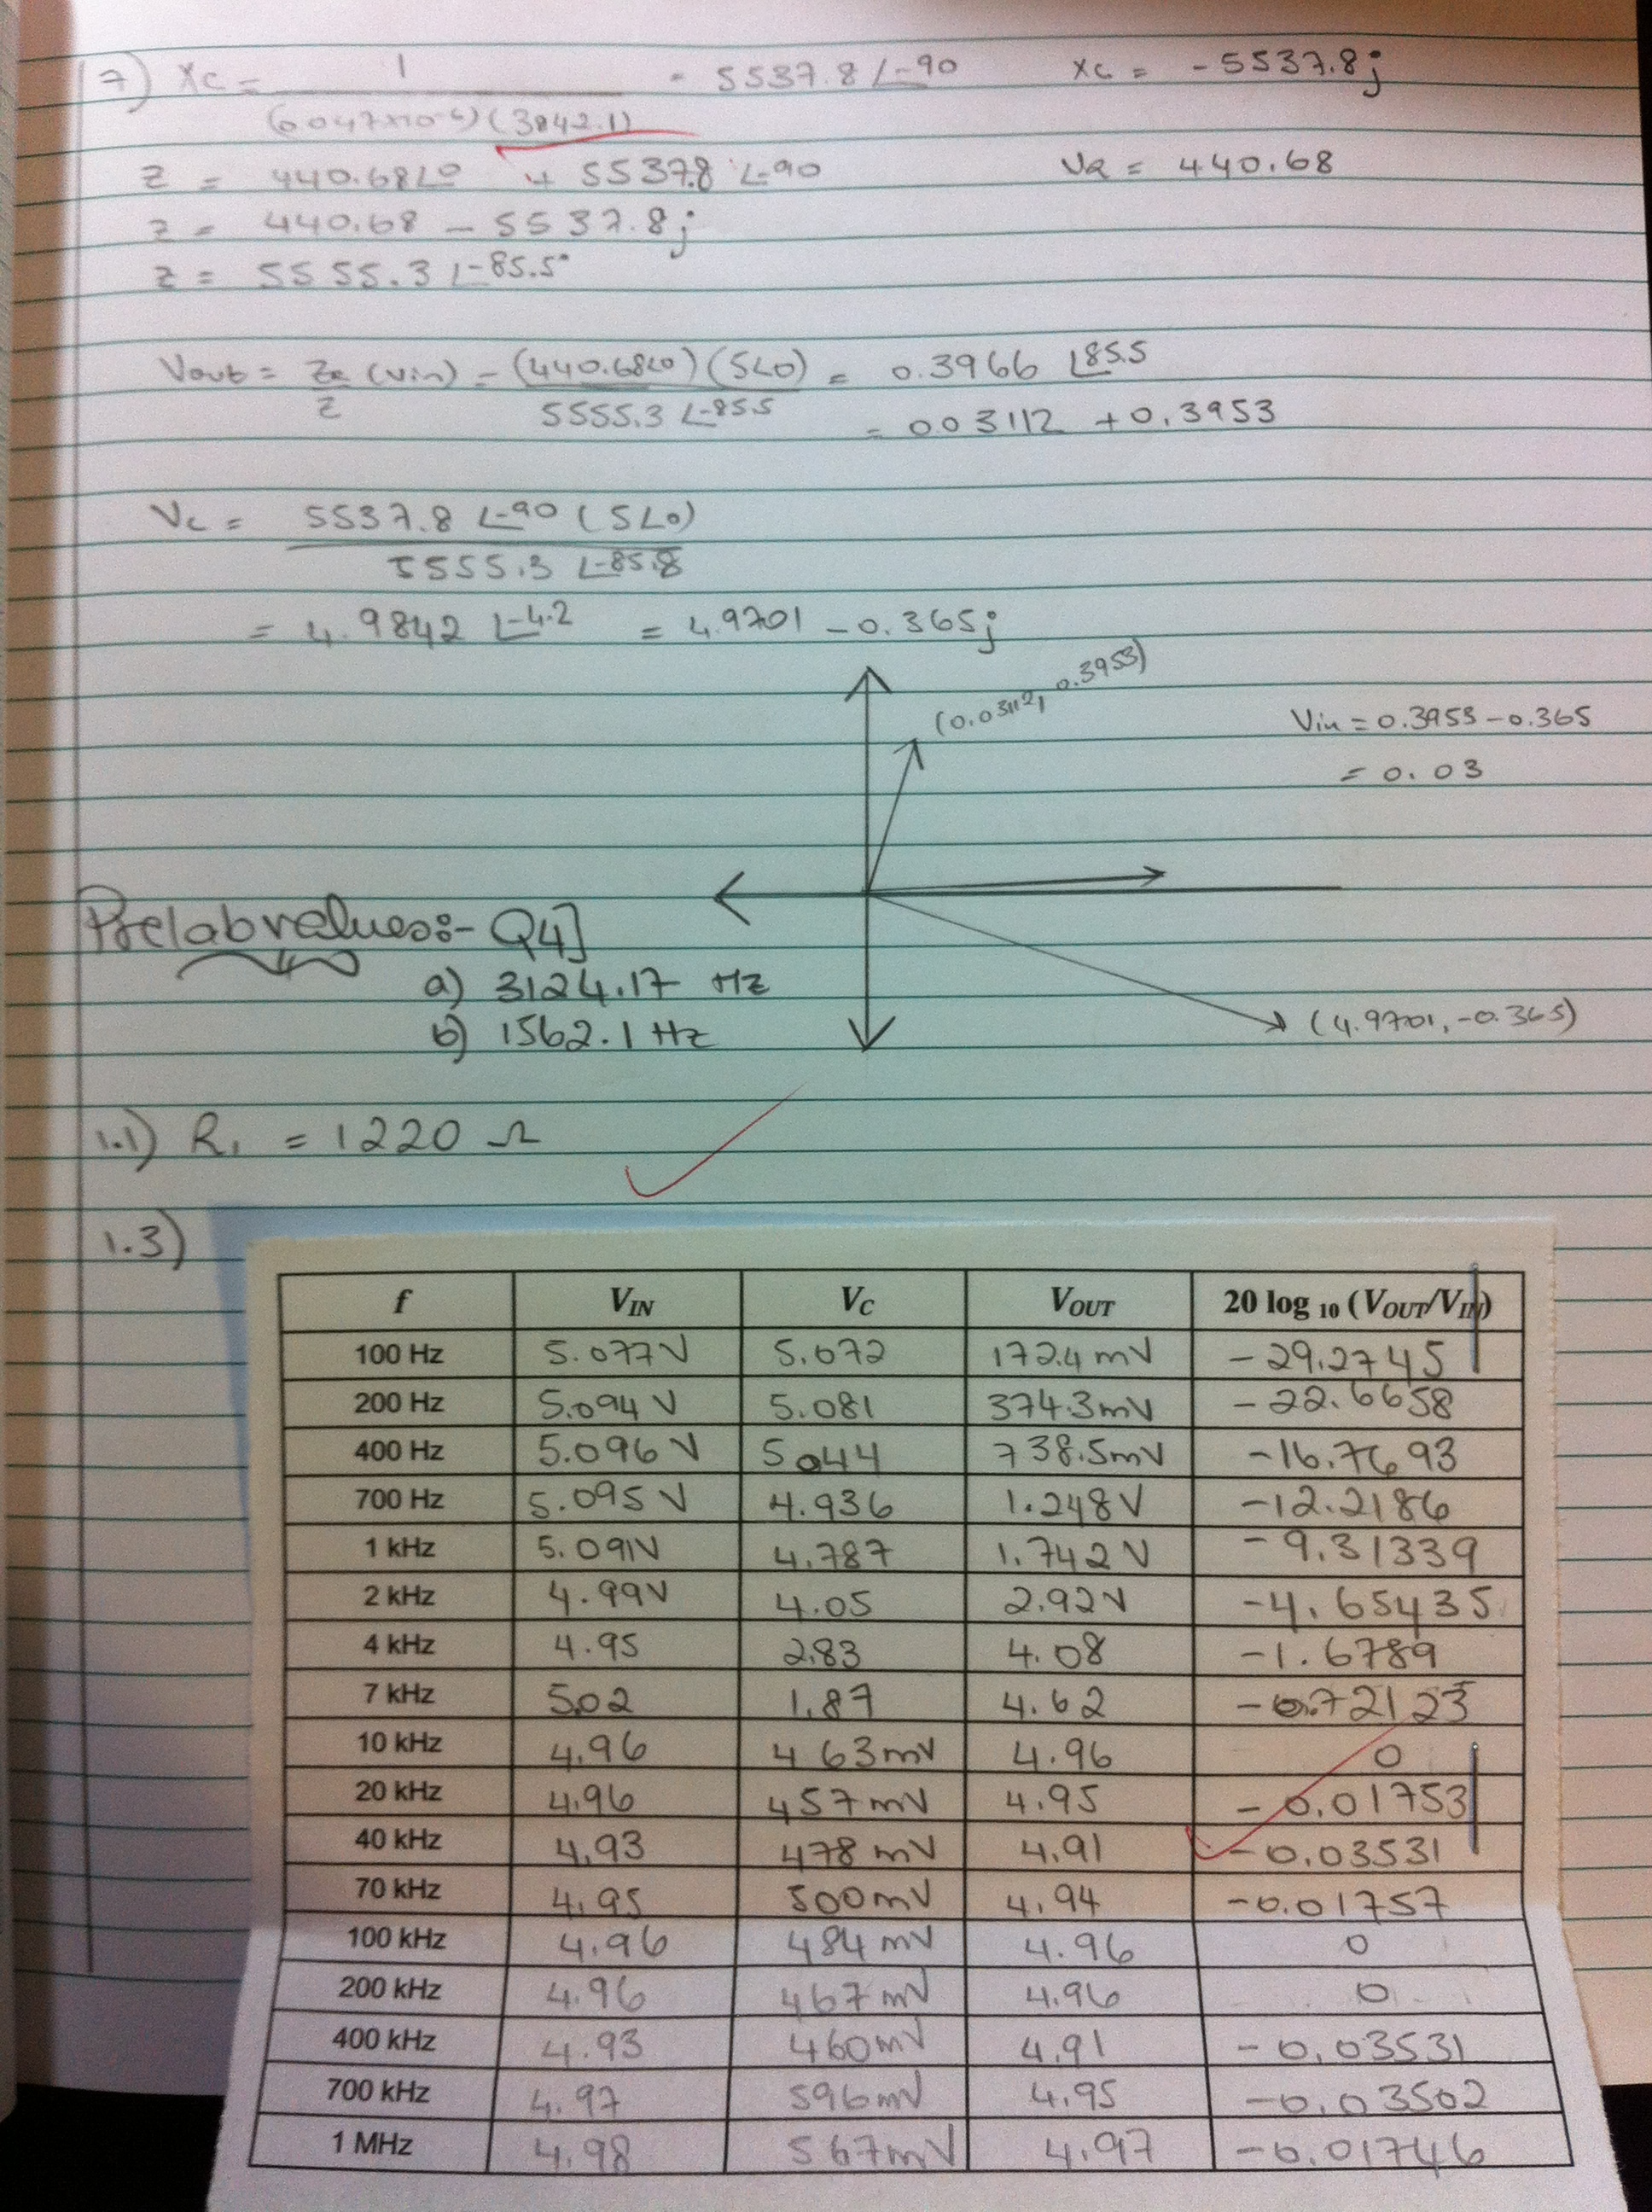 7) Xc = 1 = 5537.8 ∠-90 Xc = -5537.8j
(0.047×10⁻⁶)(3842.1)
Z = 440.68∠0 + 5537.8 ∠-90 VR = 440.68
Z = 440.68 - 5537.8j
Z = 5555.3 ∠-85.5°
Vout = ZR (Vin) = (440.68∠0)(5∠0) = 0.3966 ∠85.5
Z 5555.3 ∠-85.5
= 0.03112 + 0.3953
Vc = 5537.8 ∠-90 (5∠0)
5555.3 ∠-85.8
= 4.9842 ∠-4.2 = 4.9701 - 0.365j
(0.03112, 0.3953)
Vin = 0.3953 - 0.365
= 0.03
Prelab values:- Q4]
a) 3124.17 Hz
b) 1562.1 Hz
(4.9701, -0.365)
1.1) R₁ = 1220 Ω
1.3)
f VIN VC VOUT 20 log 10 (VOUT/VIN)
100 Hz 5.077V 5.072 172.4 mV -29.2745
200 Hz 5.094 V 5.081 374.3mV -22.6658
400 Hz 5.096 V 5.044 738.5mV -16.7693
700 Hz 5.095 V 4.936 1.248V -12.2186
1 kHz 5.091V 4.787 1.742V -9.31339
2 kHz 4.99V 4.05 2.92V -4.65435
4 kHz 4.95 2.83 4.08 -1.6789
7 kHz 5.02 1.87 4.62 -0.72123
10 kHz 4.96 463mV 4.96 0
20 kHz 4.96 457mV 4.95 -0.01753
40 kHz 4.93 478mV 4.91 -0.03531
70 kHz 4.95 500mV 4.94 -0.01757
100 kHz 4.96 484mV 4.96 0
200 kHz 4.96 467mV 4.96 0
400 kHz 4.93 460mV 4.91 -0.03531
700 kHz 4.97 596mV 4.95 -0.03502
1 MHz 4.98 567mV 4.97 -0.01746